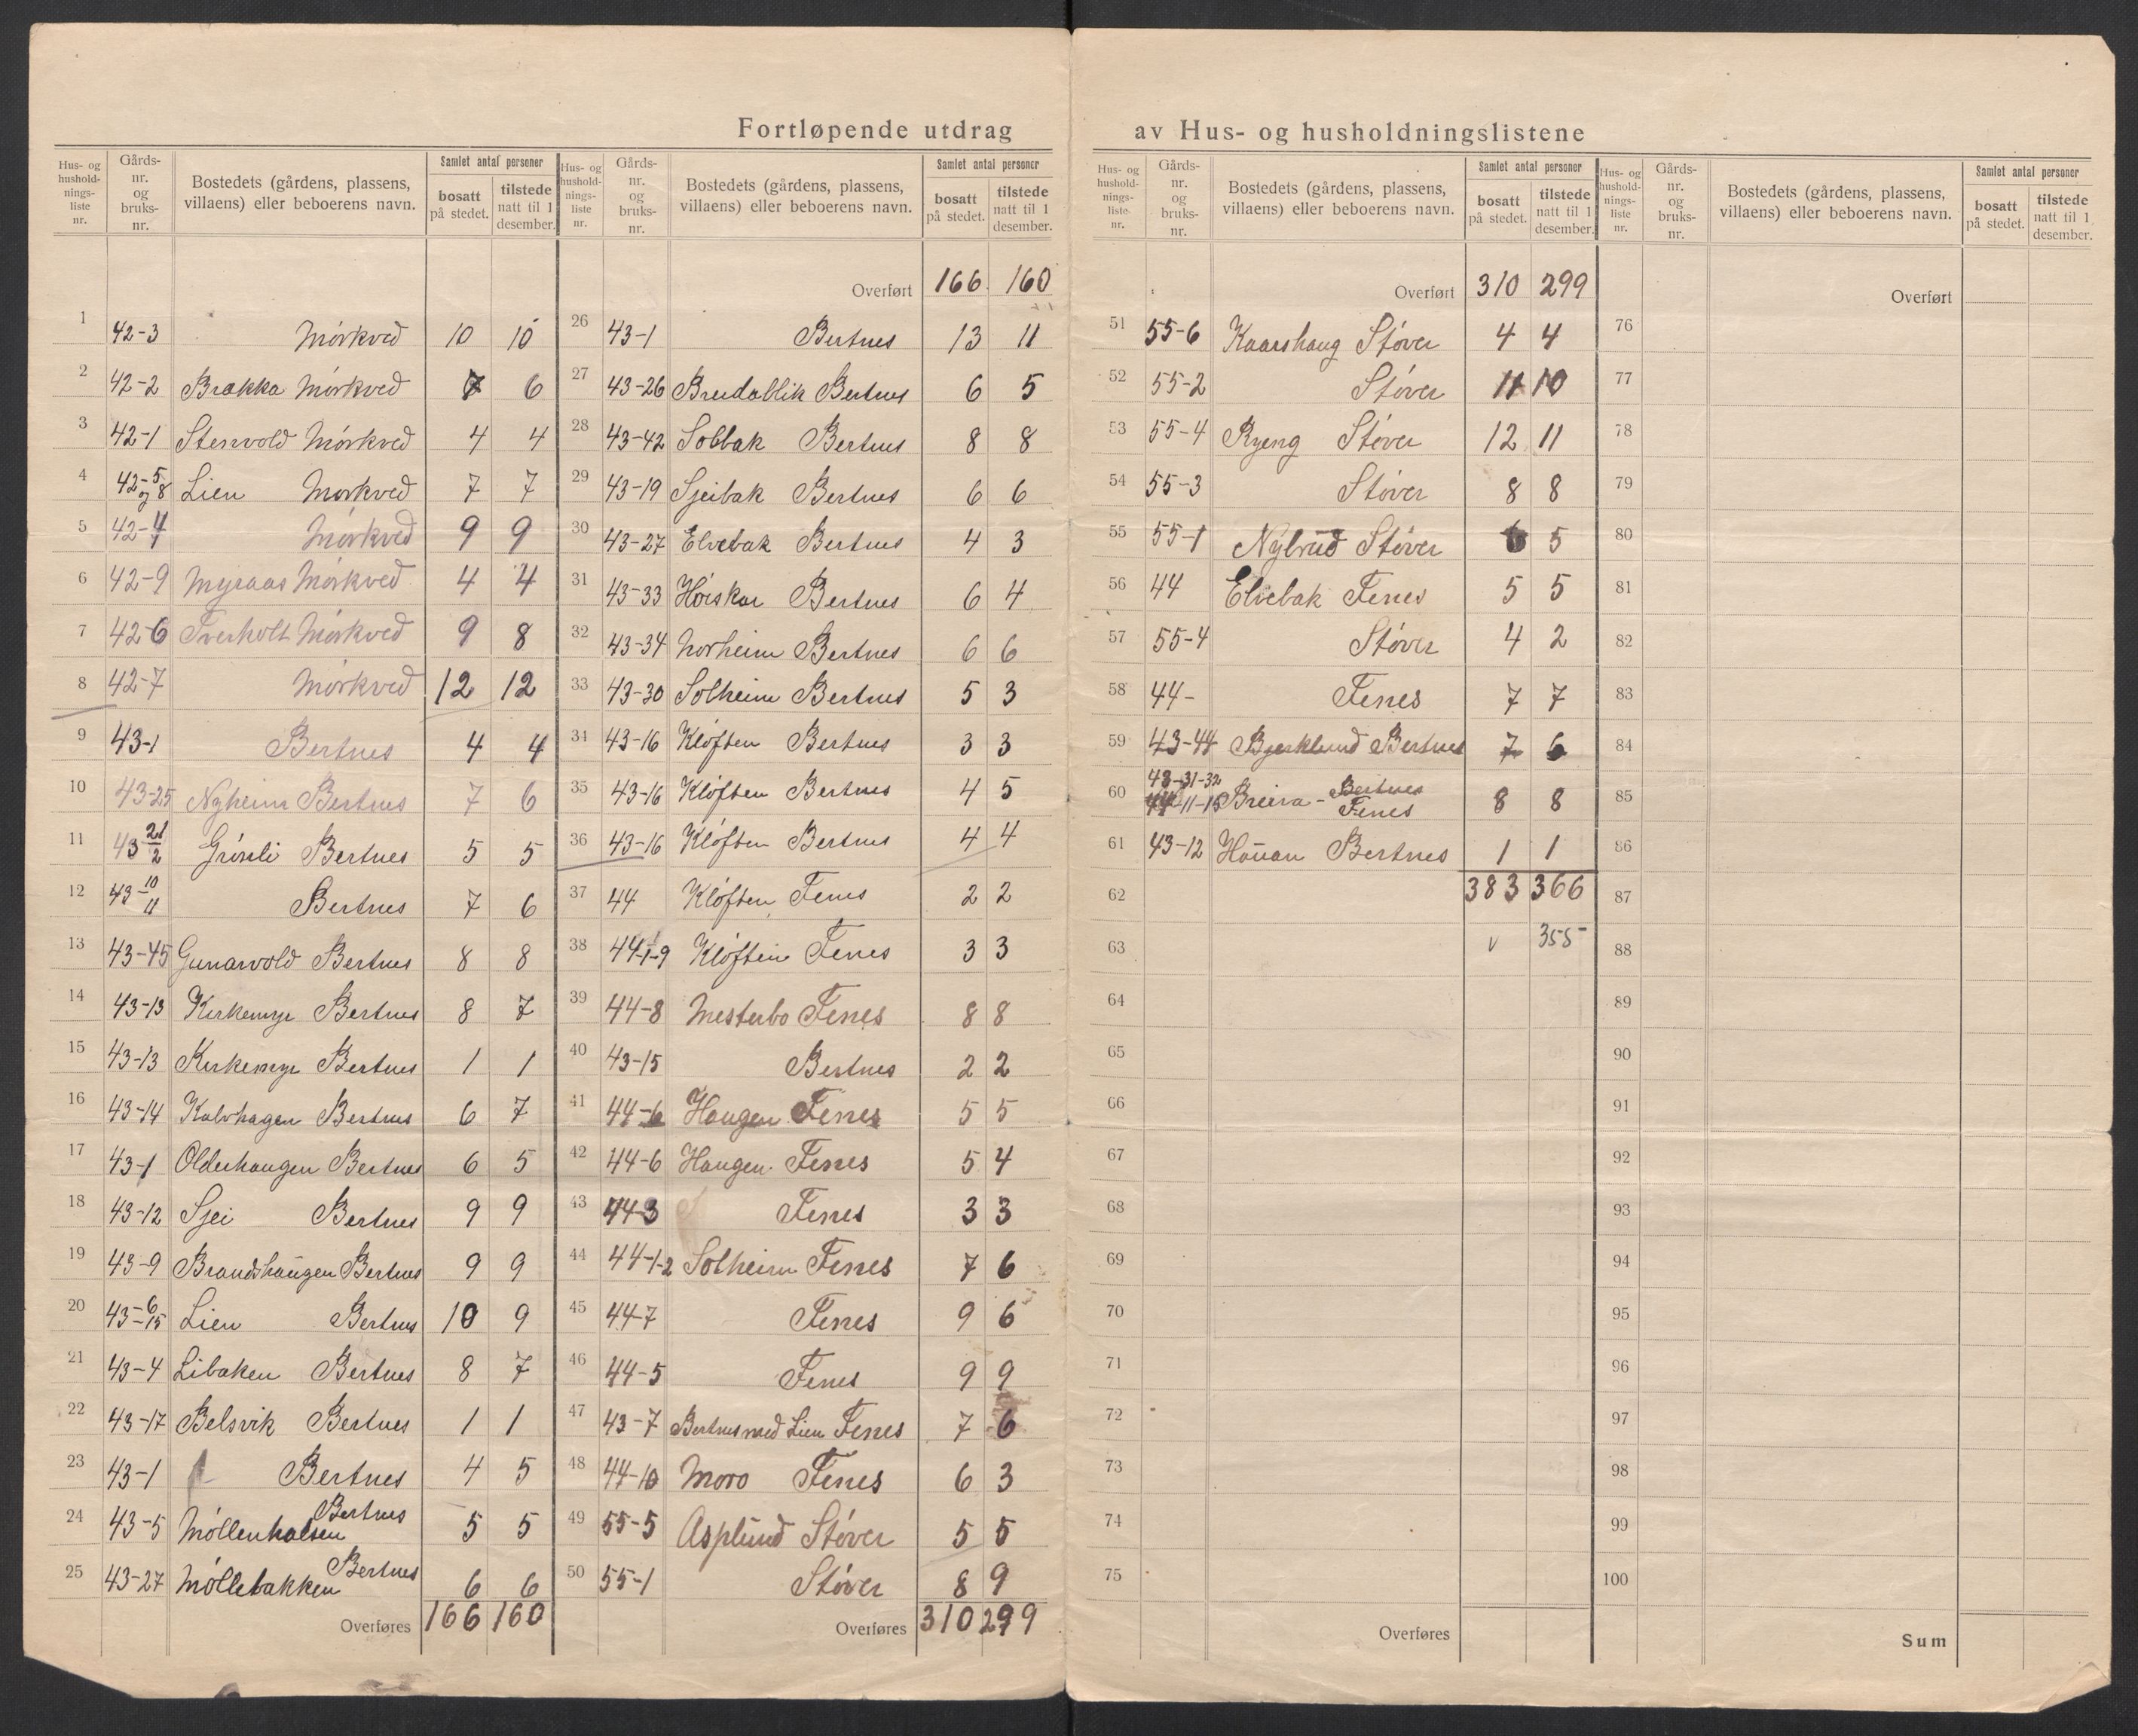 Fortløpende utdrag av Hus- og husholdningslistene
Hus- og hushold- nings- liste nr. Gårds- nr. og bruks- nr. Bostedets (gårdens, plassens, villaens) eller beboerens navn. Samlet antal personer bosatt på stedet. tilstede natt til 1 desember.
1 42-3 Mørkved 10 10
2 42-2 Brakka Mørkved 6
3 42-1 Stenvold Mørkved 4 4
4 42-5 og 8 Lien Mørkved 7 7
5 42-4 Mørkved 9 9
6 42-9 Myraas Mørkved 4 4
7 42-6 Tverholt Mørkved 9 8
8 42-7 Mørkved 12 12
9 43-1 Bertnes 4 4
10 43-25 Nyheim Bertnes 7 6
11 43-21 2 Grønli Bertnes 5 5
12 43-10 11 Bertnes 7 6
13 43-45 Gunarvold Bertnes 8 8
14 43-13 Kirkemyr Bertnes 8 7
15 43-13 Kirkemyr Bertnes 1 1
16 43-14 Kalvhagen Bertnes 6 7
17 43-1 Olderhaugen Bertnes 6 5
18 43-12 Sjei Bertnes 9 9
19 43-9 Brandshaugen Bertnes 9 9
20 43-6-15 Lien Bertnes 10 9
21 43-4 Libaken Bertnes 8 7
22 43-17 Belsvik Bertnes 1 1
23 43-1 Bertnes 4 5
24 43-5 Møllenhalsen Bertnes 5 5
25 43-27 Møllebakken Bertnes 6 6
Overføres 166 160
Hus- og hushold- nings- liste nr. Gårds- nr. og bruks- nr. Bostedets (gårdens, plassens, villaens) eller beboerens navn. Samlet antal personer bosatt på stedet. tilstede natt til 1 desember.
Overført 166 160
26 43-1 Bertnes 13 11
27 43-26 Breidablik Bertnes 6 5
28 43-42 Solbak Bertnes 8 8
29 43-19 Sjeibak Bertnes 6 6
30 43-27 Elvebak Bertnes 4 3
31 43-33 Høiskar Bertnes 6 4
32 43-34 Norheim Bertnes 6 6
33 43-30 Solheim Bertnes 5 3
34 43-16 Kløften Bertnes 3 3
35 43-16 Kløften Bertnes 4 5
36 43-16 Kløften Bertnes 4 4
37 44 Kløften Fenes 2 2
38 44-1-9 Kløften Fenes 3 3
39 44-8 Mesterbo Fenes 8 8
40 43-15 Bertnes 2 2
41 44-6 Haugen Fenes 5 5
42 44-6 Haugen Fenes 5 4
43 44-3 Fenes 3 3
44 44-1-2 Solheim Fenes 7 6
45 44-7 Fenes 9 6
46 44-5 Fenes 9 9
47 43-7 Bertnes med Lien Fenes 7 6
48 44-10 Moro Fenes 6 3
49 55-5 Asplund Støver 5 5
50 55-1 Støver 8 9
Overføres 310 299
Hus- og hushold- nings- liste nr. Gårds- nr. og bruks- nr. Bostedets (gårdens, plassens, villaens) eller beboerens navn. Samlet antal personer bosatt på stedet. tilstede natt til 1 desember.
Overført 310 299
51 55-6 Kaarshaug Støver 4 4
52 55-2 Støver 11 10
53 55-4 Ryeng Støver 12 11
54 55-3 Støver 8 8
55 55-1 Nybrud Støver 6 5
56 44 Elvebak Fenes 5 5
57 55-4 Støver 4 2
58 44- Fenes 7 7
59 43-44 Bjerklund Bertnes 7 6
60 43-31-32 44-11-15 Breiva - Bertnes Fenes 8 8
61 43-12 Hauan Bertnes 1 1
62 383 366
63 v 355
64
65
66
67
68
69
70
71
72
73
74
75
Overføres
Hus- og hushold- nings- liste nr. Gårds- nr. og bruks- nr. Bostedets (gårdens, plassens, villaens) eller beboerens navn. Samlet antal personer bosatt på stedet. tilstede natt til 1 desember.
Overført
76
77
78
79
80
81
82
83
84
85
86
87
88
89
90
91
92
93
94
95
96
97
98
99
100
Sum